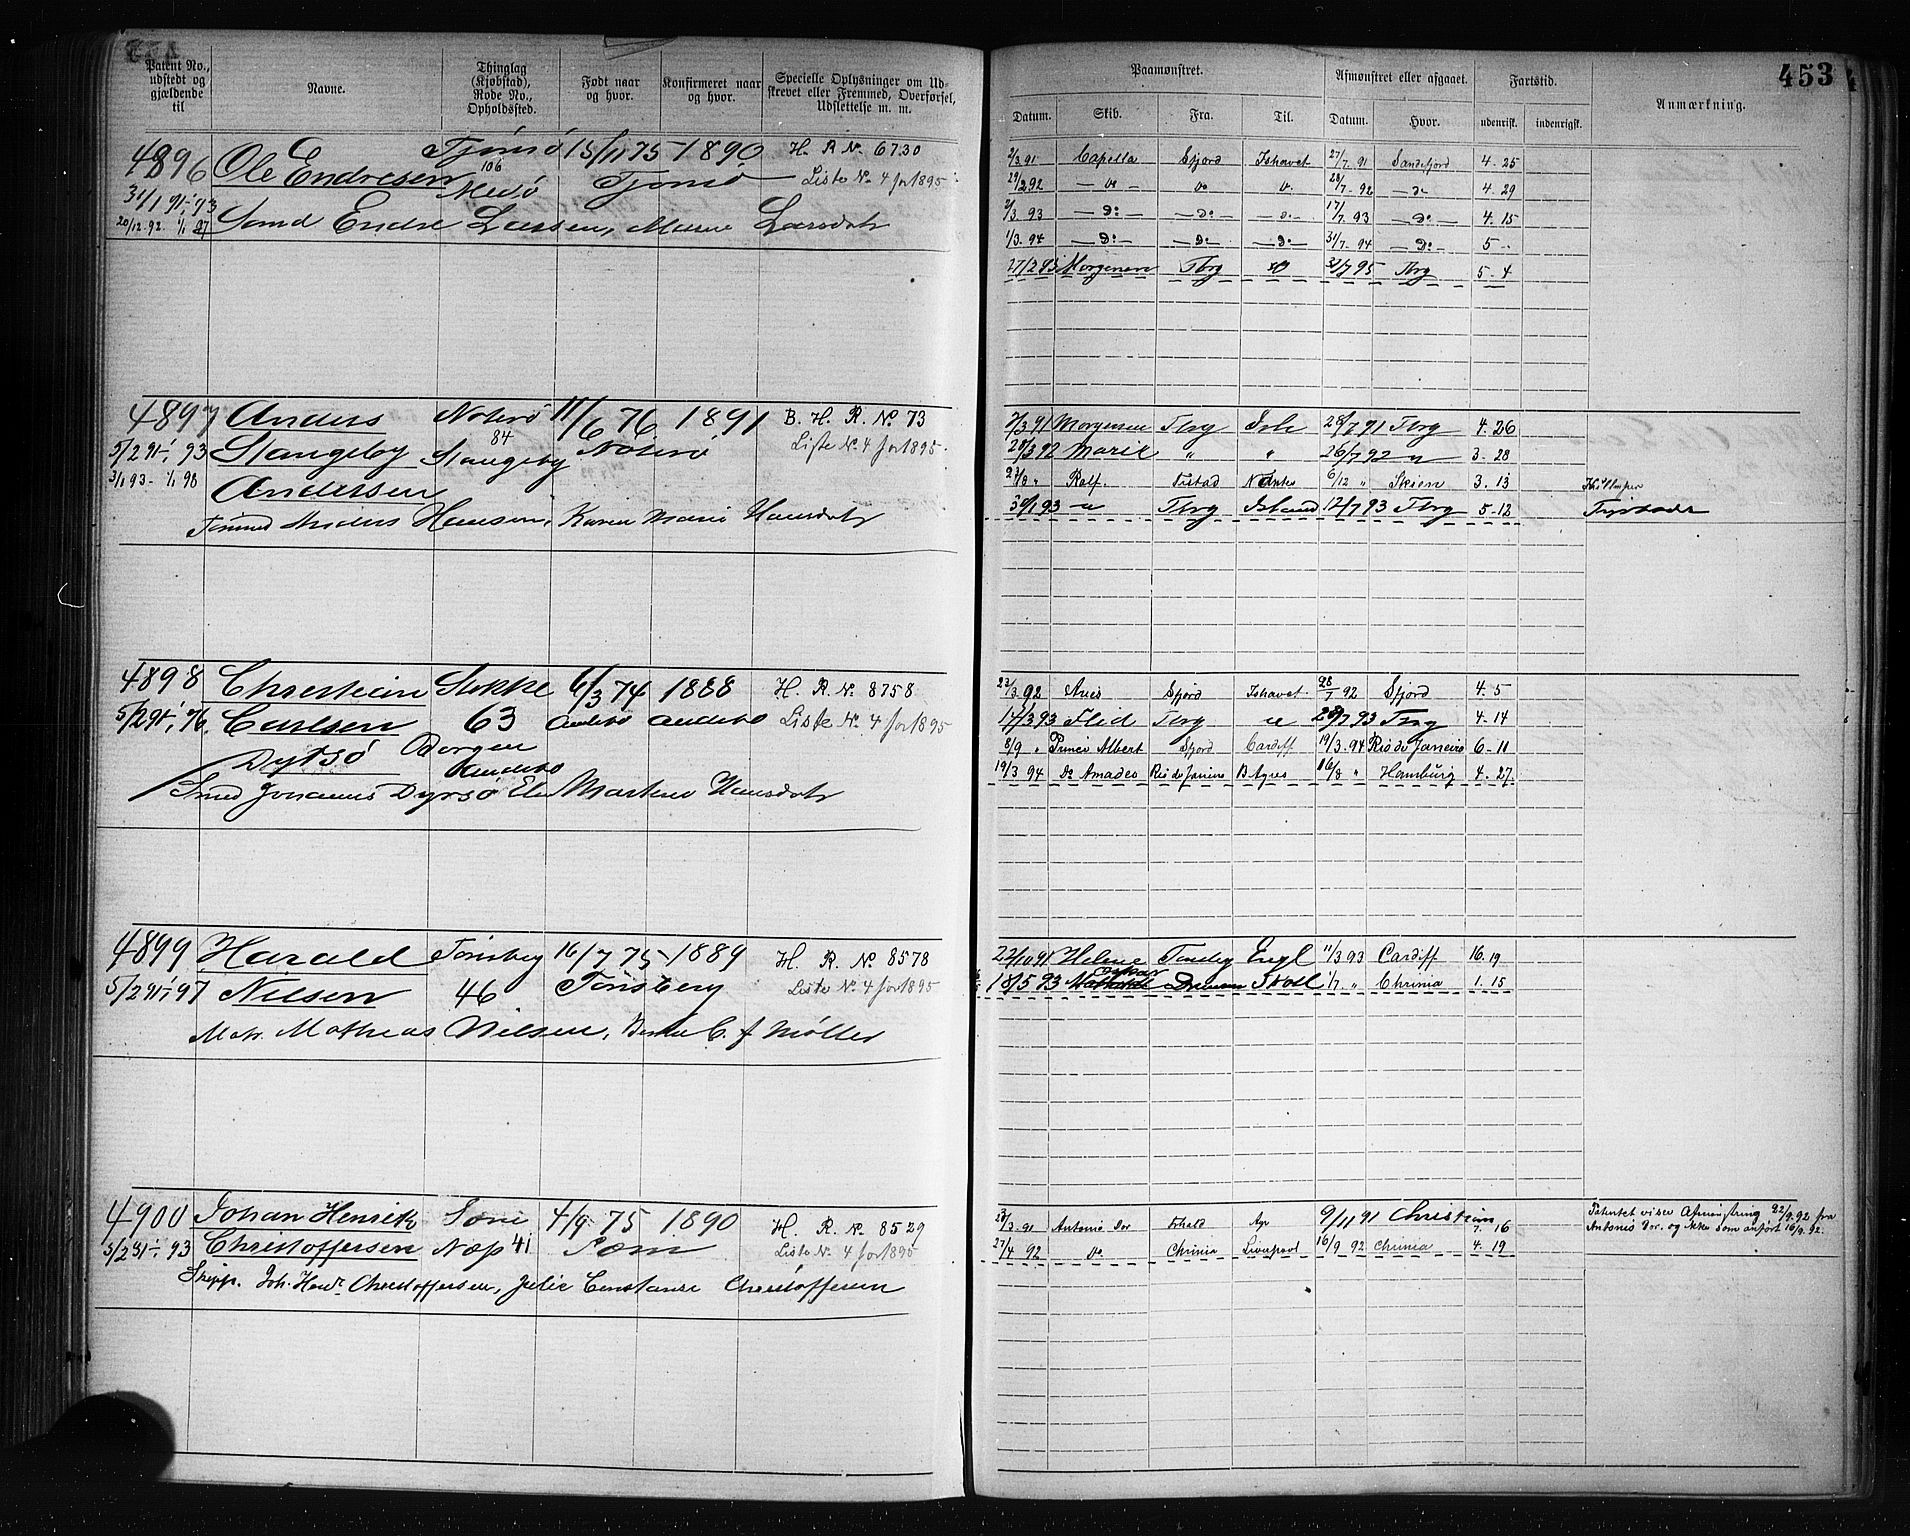 453
Patent No., udstedt og gjældende til
Navne.
Thinglag (Kjøbstad), Rode No., Opholdssted.
Født naar og hvor.
Konfirmeret naar og hvor.
Specielle Oplysninger om Udskrevet eller Fremmed, Overførsel, Udslettelse m. m.
Paamønstret.
Afmønstret eller afgaaet.
Fartstid.
Anmærkning.
Datum. Skib. Fra. Til. Datum. Hvor. udenrisk. indenrigsk.
4896 Ole Endresen Tjømø 15/11 75 1890 H. R No. 6730
31/1 91-1/1 93 106 Medø Tjømø Liste No. 4 for 1895
20/12.92. 1/1 97 Endre Larsen, Larsdatr
2/3 91 Capella Sfjord Ishavet 27/7 91 Sandefjord 4. 25
29/2 92 — Do — Do 28/7 - 92 — Do 4. 29
2/3 93 — Do — — Do — — Do 17/7 93 — Do — 4. 15
1/3. 94 — Do — — Do — — Do — 31/7 94 — Do — 5 -
27/2 95 Morgenen Tbrg Do 31/7 95 Tbrg 5 - 4
4897 Anders Noterø 11/6 76 1891 B. H. R. No. 73
5/2 91-1/1 93 Stangeby 84 Stangeby Nøterø Liste No. 4 for 1895
3/1 93- 1/1 98 Andersen
Anders Hansen, Karen Marie Hansdatr
2/3 91 Morgenen Tbrg Ish 28/7 91 Tbrg 4. 26
28/3 92 Marie " " 26/7 92 " 3 - 28
23/8 " Rolf. Fr.stad Nantes 6/12 " Skien 3. 13
30/1 93 " Tbrg Island 12/7 93 Tbrg 5 - 12
4898 Christian Stokke 6/3 74 1888 H. R. No. 8758
5/2 91-1/1 96. Carlsen 63 Andebo Andebo Liste No. 4 for 1895
Dyrsø Borgen Andebo
Johannes Dyrsø Martine Hansdatr
23/3 92 Aries Sfjord Ishavet 28/7 92 Sfjord 4. 5
14/3 93 Flid Tbrg " 28/7 93 Tbrg 4 - 14
8/9 " Prince Albert Sfjord Cardiff 19/3. 94 Rio de Janeiro 6 - 11
19/3 94 Do Amadeo Rio de Janeiro B Ayres 16/8 " Hamburg 4. 27.
4899 Harald Tønsberg 16/7 75 1889 H. R. No. 8578
5/2 91-1/1 97 Nilsen 46 Tønsberg Liste No. 4 for 1895
Matr. Mathias Nilsen, C. f Møller
22/10 91 Helene Tønsberg Engl 11/3 93 Cardiff 16. 19
18/5 93 Drammen Skotl 1/7 " Chrinia 1. 15
4900 Johan Henrik Sæm 4/9 75 1890 H. R. No. 8529
5/2 91-1/1 93 Christoffersen Næp 41 Sæm Liste No. 4 for 1895
Skipp. Joh. Henr. Christoffersen, Julie Constanse Christoffersen
28/3 91 Antonie Dor Fr.hald Ayr 9/11 91 Christiania 7. 16
27/4 92 Do Chrinia Liverpool 16/9 92 Chrinia 4. 19
Patentet viser Afmønstring 22/9.92 fra
Antonie Dor. og ikke som anført 16/9. 92.